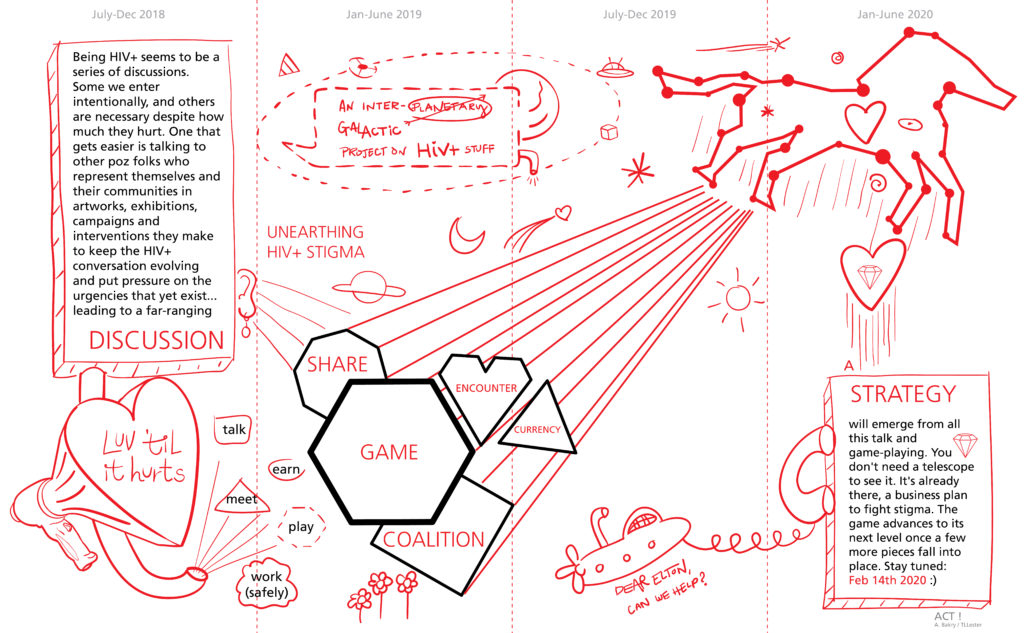 July-Dec 2018
Jan-June 2019
July-Dec 2019
Jan-June 2020
Being HIV+ seems to be a
series of discussions.
Some we enter
intentionally, and others
are necessary despite how
much they hurt. One that
gets easier is talking to
other poz folks who
represent themselves and
their communities in
artworks, exhibitions,
campaigns and
interventions they make
to keep the HIV+
conversation evolving
and put pressure on the
urgencies that yet exist...
leading to a far-ranging
DISCUSSION
AN INTER-PLANETARY
GALACTIC
PROJECT ON HIV+ STUFF
UNEARTHING
HIV+ STIGMA
SHARE
ENCOUNTER
CURRENCY
GAME
COALITION
LUV 'TIL
it hurts
talk
earn
meet
play
work
(safely)
DEAR ELTON,
CAN WE HELP?
A
STRATEGY
will emerge from all
this talk and
game-playing. You
don't need a telescope
to see it. It's already
there, a business plan
to fight stigma. The
game advances to its
next level once a few
more pieces fall into
place. Stay tuned:
Feb 14th 2020 :)
ACT !
A. Bakry / TLLester